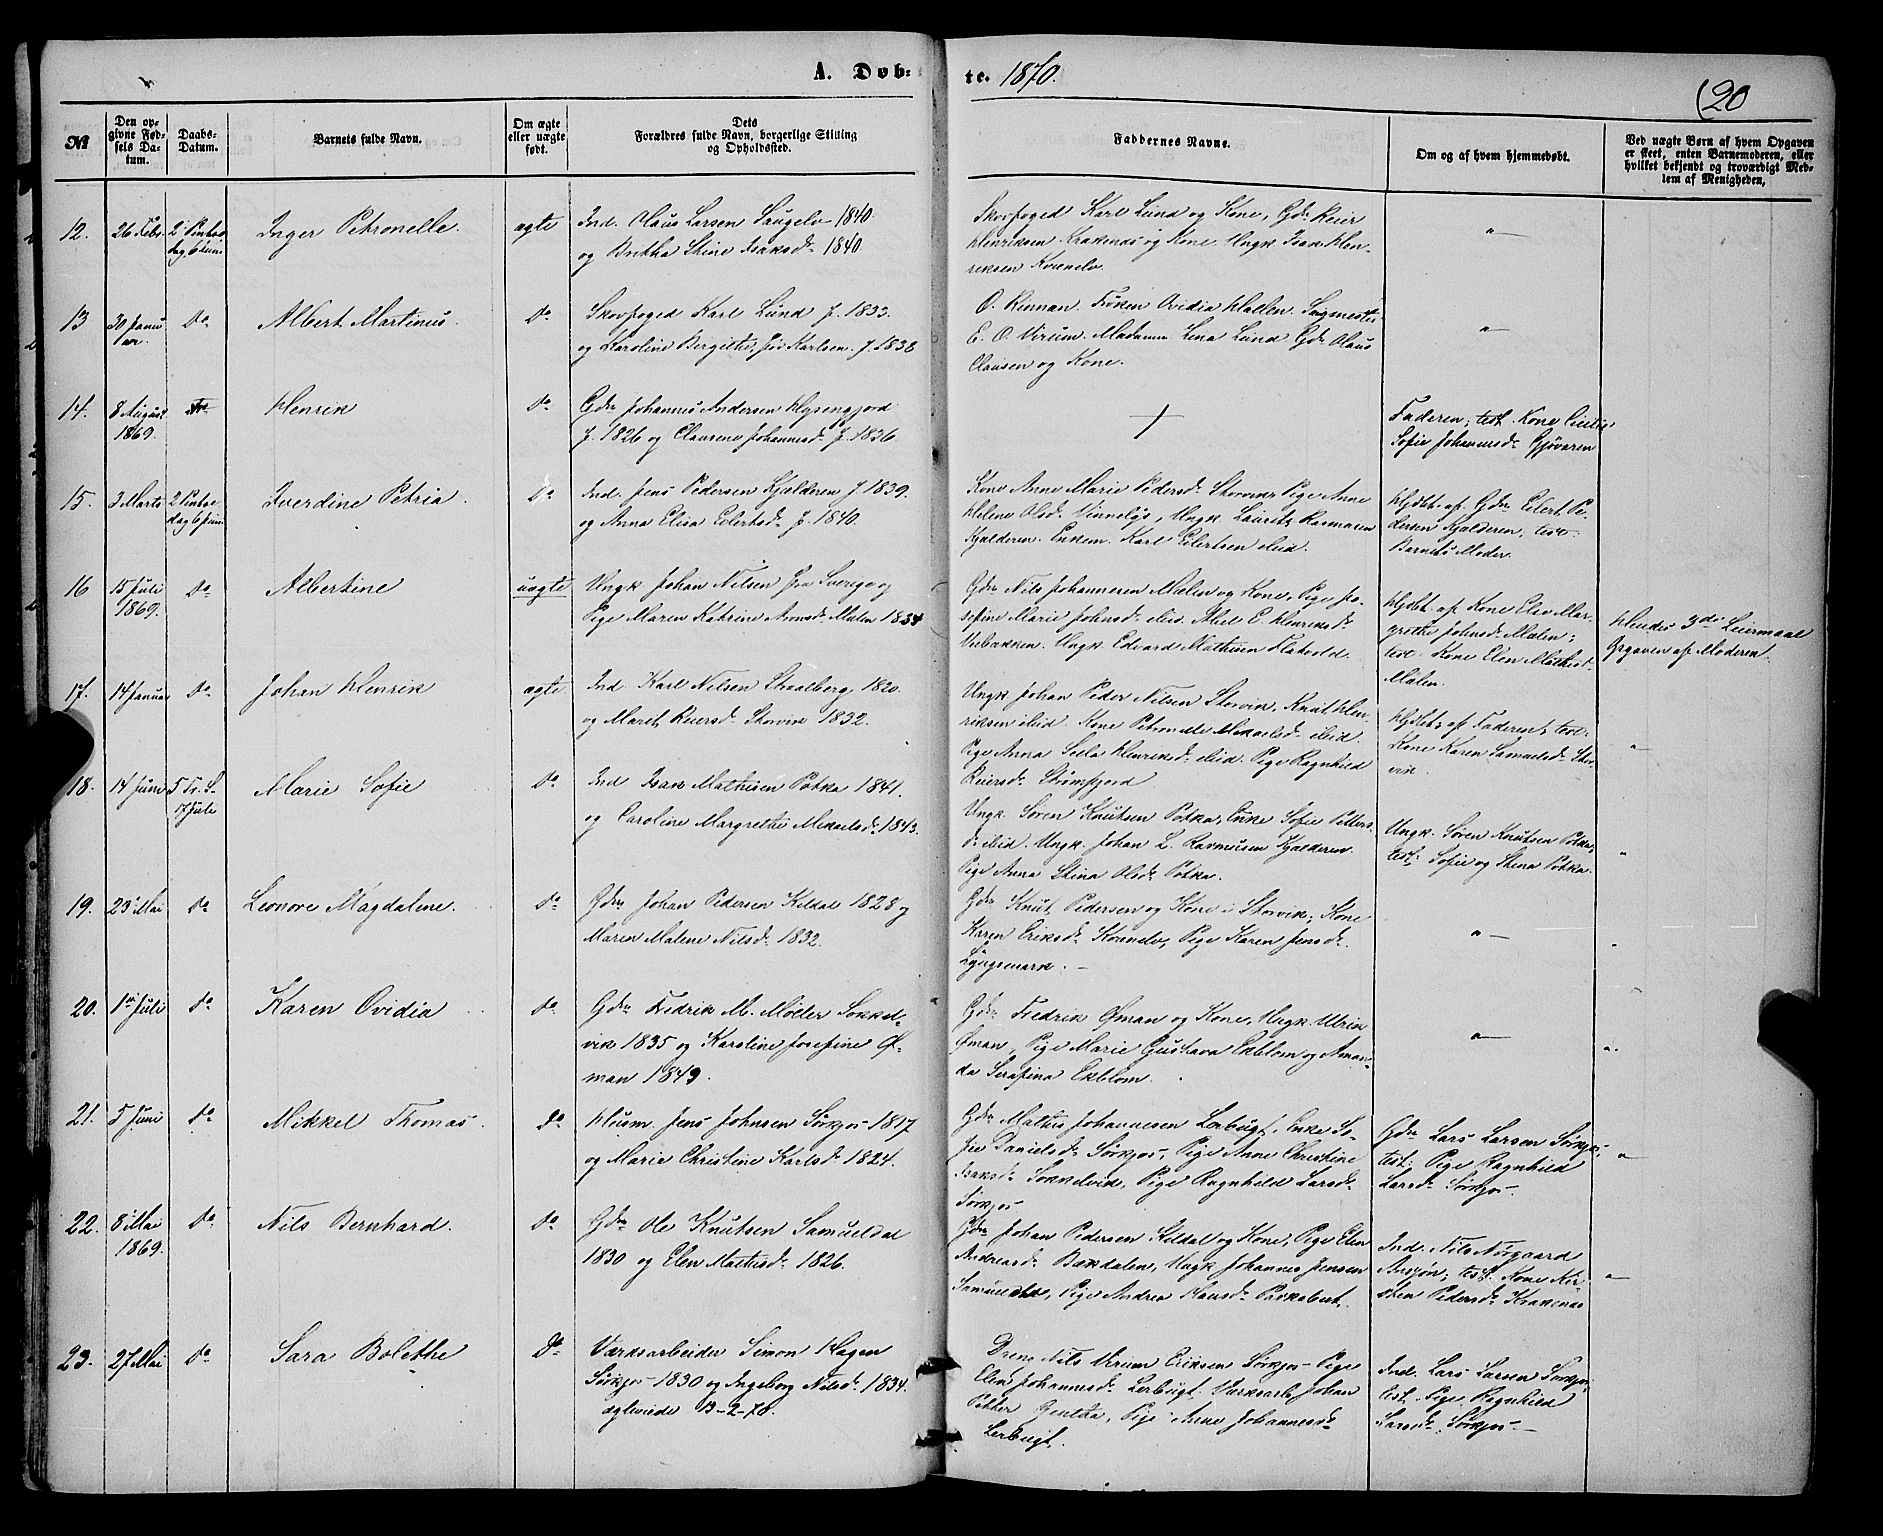 A. Døb-
te. 1870.
(20
№
Den op-
givne Fød-
sels Da-
tum.
Daabs-
Datum.
Barnets fulde Navn.
Om ægte
eller uægte
født.
Dets
Forældres fulde Navn, borgerlige Stilling
og Opholdssted.
Faddernes Navne.
Om og af hvem hjemmedøbt.
Ved uægte Børn af hvem Opgaven
er skeet, enten Barnemoderen, eller
hvilket bekjendt og troværdigt Med-
lem af Menigheden,
12. 26 Febr. 2 Pintse
dag, 6 Juni
Inger Petronelle
ægte
Ind. Olaus Larsen Laugelv 1840
og Britha Stine Isaksdr 1840.
Skovfoged Karl Lund og Kone, Gdr Reier
Henriksen Krakenæs og Kone. Ungk Isak Hen-
riksen Kvænelv.
"
13 30 Janu
ar.
do
Albert Martinus.
do
Skovfoged Karl Lund f. 1833.
og Karoline Bergitte, Karlsen. f. 1838
O. Rinnan. Frøken Ovidia Maelen. Sagmester
E. O. Virum. Madamm Lina Lund Gdr Olaus
Clausen og Kone.
"
14. 8 August
1869.
Henrik
do
Gdr Johannes Andersen
f. 1826 og Clausine Johannesdr f. 1836.
+
Faderen; test. Kone
Sofie Johannesdr Gjøvaren
15. 3 Marts 2 Pintse
dag 6 Juni
Iverdine Petria.
do
Ind. Jens Pedersen Kjælderen f 1839.
og Anna Elisa Eilertsdr f. 1840.
Kone Anne Marie Pedersdr Storvik, Pige Anne
Helene Olsdr Vinnelys, Ungk. Laurits Rasmusen
Kjælderen. Enkem. Karl Eilertsen ibid.
Hjdbt. af Gdr Eilert Pe-
dersen Kjælderen, test.
Barnets Moder.
16 15 Juli
1869.
do
Albertine
uægte
Ungk Johan Nilsen fra Sverige og
Pige Maren Katrine Aronsdr Malen 1834
Gdr Nils Johannesen Mælen og Kone, Pige Jo-
sefine Marie Johnsdr ibid. Abel E. Henriksdr
Viebakken. Ungk Edvard Mathisen Flatvold.
Hjdbt. af Kone Elen Mar-
grethe Johnsdr Malen;
test. Kone Elen Mathisdr
Malen.
Hendes 3de Leiermaal
Opgaven af Moderen.
17. 14 Januar do
Johan Henrik
ægte
Ind. Karl Nilsen Straalberg, 1820.
og Marit Reiersdr Storvik 1832.
Ungk Johan Peder Nilsen Storvik, Knut Hen-
riksen ibid. Kone Petronelle Mikaelsdr ibid.
Pige Anna Sela Henriksdr ibid. Pige Ragnhild
Reiersdr Strømfjord
Hjdbt. af Faderen; test.
Kone Karen Samuelsdr Stor-
vik.
"
18. 14 Juni 5 Tr. S.
17 Juli
Marie Sofie
do
Ind Isak Mathisen Potka 1841.
og Caroline Margrethe Mikaelsdr 1843.
Ungk. Søren Knutsen Potka, Enke Sofie Petters-
dr ibid. Ungk. Johan L. Rasmusen Kjælderen.
Pige Anna Stina Olsdr Potka.
Ungk. Søren Knutsen Potka,
test: Sofie og Stina Potka.
"
19. 23 Mai do
Leonore Magdalene.
do
Gdr Johan Pedersen Kildal 1828 og
Maren Malene Nilsdr 1832.
Gdr Knut Pedersen og Kone i Storvik; Kone
Karen Eriksdr Kvænelv, Pige Karen Jensdr
Lyngmark. –
"
"
20. 1ste Juli do
Karen Ovidia
do
Gdr Fredrik M. Møller Sokkel-
vik 1835 og Karoline Josefine Ø-
man 1849.
Gdr Fredrik Øman og Kone, Ungk. Ulrik
Øman, Pige Marie Gustava Ekblom og Aman-
da Serafina Ekblom.
"
"
21. 5 Juni do
Mikkel Thomas.
do
Husm. Jens Johnsen Sørkjos 1817
og Marie Christine Karlsdr 1824.
Gdr Mathis Johannesen Lerbugt, Enke So-
fie Danielsdr Sørkjos, Pige Anne Christine
Isaksdr Sokkelvik, Pige Ragnhild Larsdr
Sørkjos
Gdr Lars Larsen Sørkjos,
test: Pige Ragnhild
Larsdr Sørkjos.
"
22. 8 Mai
1869.
do
Nils Bernhard.
do
Gdr Ole Knutsen Samueldal
1830 og Elen Mathisdr 1826.
Gdr Johan Pedersen Kildal og Kone, Pige Elen
Andreasdr Bækdalen, Ungk Johannes Jensen
Samueldal, Pige Andrea Hansdr
Ind. Nils Norgaard
test. Kone Kir-
sten Pedersdr Krakenæs
"
23. 27 Mai do
Sara Bolethe
do
Værksarbeider Simon Hagen
Sørkjos 1830 og Ingeborg Nilsdr 1834.
ægteviede 13-2-70.
Dreng Nils Virum Eriksen Sørkjos Pige
Elen Johannesdr Lerbugt. Værksarb. Johan
Petter Pige Anne Johannesdr
Lerbugt.
Ind. Lars Larsen Sørkjos,
test. Pige Ragnhild
Larsdr Sørkjos –